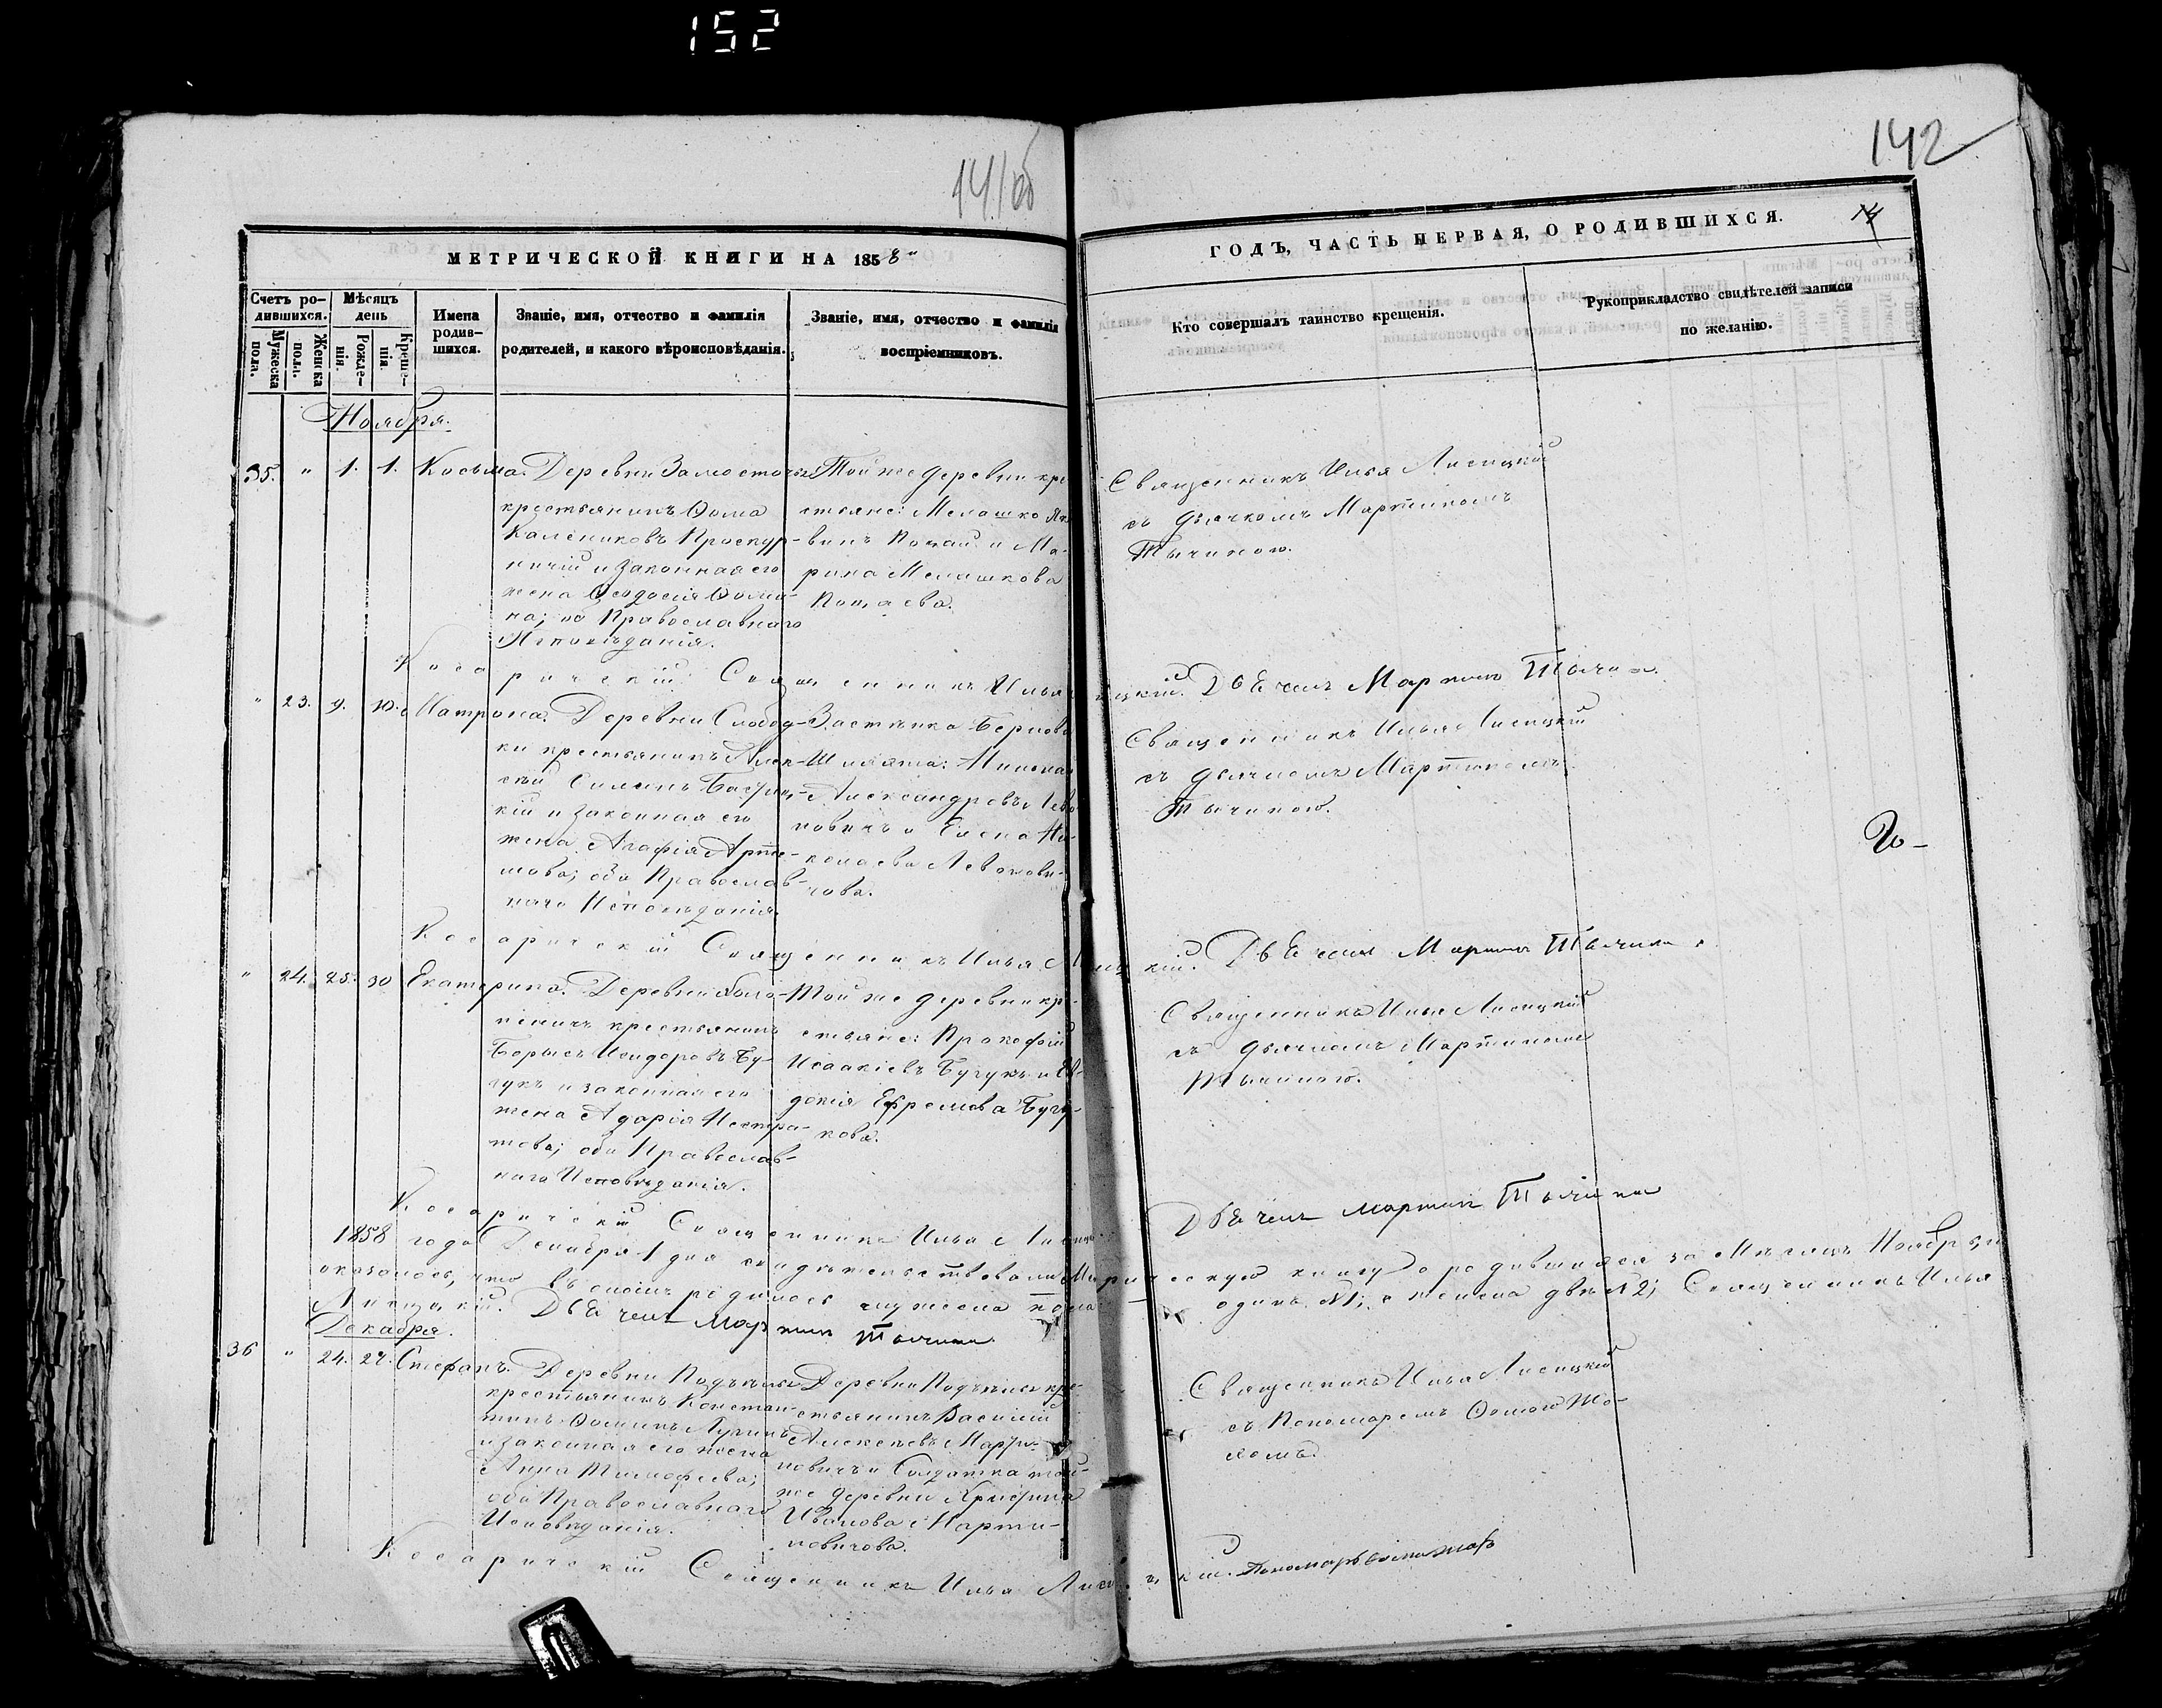 152
141 об
142
МЕТРИЧЕСКОЙ КНИГИ НА 1858
ГОДЪ, ЧАСТЬ ПЕРВАЯ, О РОДИВШИХСЯ.
Счетъ ро-
дившихся.
Мужеска
пола.
Женска
пола.
Мѣсяцъ
день
Рожде-
нія.
Креще-
нія.
Имена
родив-
шихся.
Званіе, имя, отчество и фамилія
родителей, и какого вѣроисповѣданія.
Званіе, имя, отчество и фамилія
воспріемниковъ.
Кто совершалъ таинство крещенія.
Рукоприкладство свидѣтелей записи
по желанію.
Ноября.
35. " 1. 1. Косьма.
Деревни
крестьянинъ Ѳома
Калениковъ Проскур-
ничій и законная его
жена Ѳеодосія Ѳоми-
на; оба Православнаго
Исповѣданія.
Той же деревни кре
стьяне: Мелашко
винъ и Ма-
рина Мелашкова
Священникъ Илья Лисицкій
съ дьячкомъ Мартиномъ
Тычиною.
Косаричскій Священникъ Илья Лисицкій. Дьячекъ Мартинъ Тычина.
" 23. 9. 10. Матрона.
Деревни Слобод-
ки крестьянинъ Алек-
сѣй
кій и законная его
жена Агафія Арте-
мова; оба Православ-
наго Исповѣданія.
Застѣнка
Шляхта: Николай
Александровъ Лево
новичъ и Елена Ни-
колаева Левонови-
чова.
Священникъ Илья Лисицкій
съ дьячкомъ Мартиномъ
Тычиною.
Косаричскій Священникъ Илья Лисицкій. Дьячекъ Мартинъ Тычина.
" 24. 25. 30 Екатерина.
Деревни
крестьянинъ
Борисъ Исидоровъ Бу-
гукъ и законная его
жена Дарія
това; оба Православ-
наго Исповѣданія.
Той же деревни кре-
стьяне: Прокофій
Исаакіевъ Бугукъ и Ев-
докія Ефремова Бугу-
кова.
Священникъ Илья Лисицкій
съ дьячкомъ Мартиномъ
Тычиною.
Косаричскій Священникъ Илья Лисицкій. Дьячекъ Мартинъ Тычина
1858 года Декабря 1 дня свидѣтельствовали Метрическую книгу о родившихся за Мѣсяцъ Ноябрь, и
оказалось, что въ ономъ родилось мужеска пола одинъ №1; а женска двѣ №2; Священникъ Илья
Лисицкій. Дьячекъ Мартинъ Тычина
Декабря.
36 " 24. 27. Стефанъ.
Деревни
крестьянинъ Констан-
тинъ Ѳоминъ
и законная его жена
Анна Тимофеева;
оба Православнаго
Исповѣданія.
Деревни кре-
стьянинъ Василій
Алексѣевъ Марти-
новичъ и Солдатка той-
же деревни Христина
Иванова Марти-
новичова.
Священникъ Илья Лисицкій
съ Пономаремъ Ѳомою
Косаричскій Священникъ Илья Лисицкій. Пономарь